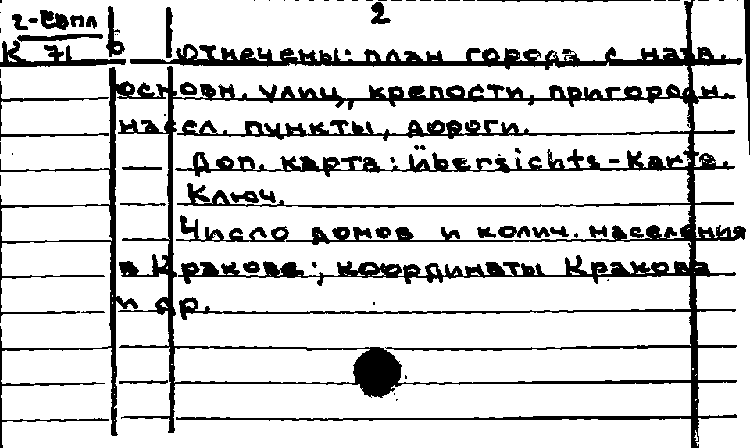 2
2-Европ
К 71 б
Отмечены: план города с назв.
основн. улиц, крепости, пригородн.
насел. пункты, дороги.
Доп. карта: Übersichts-Karte.
Ключ.
Число домов и колич. населения
в Кракове; координаты Кракова
и др.